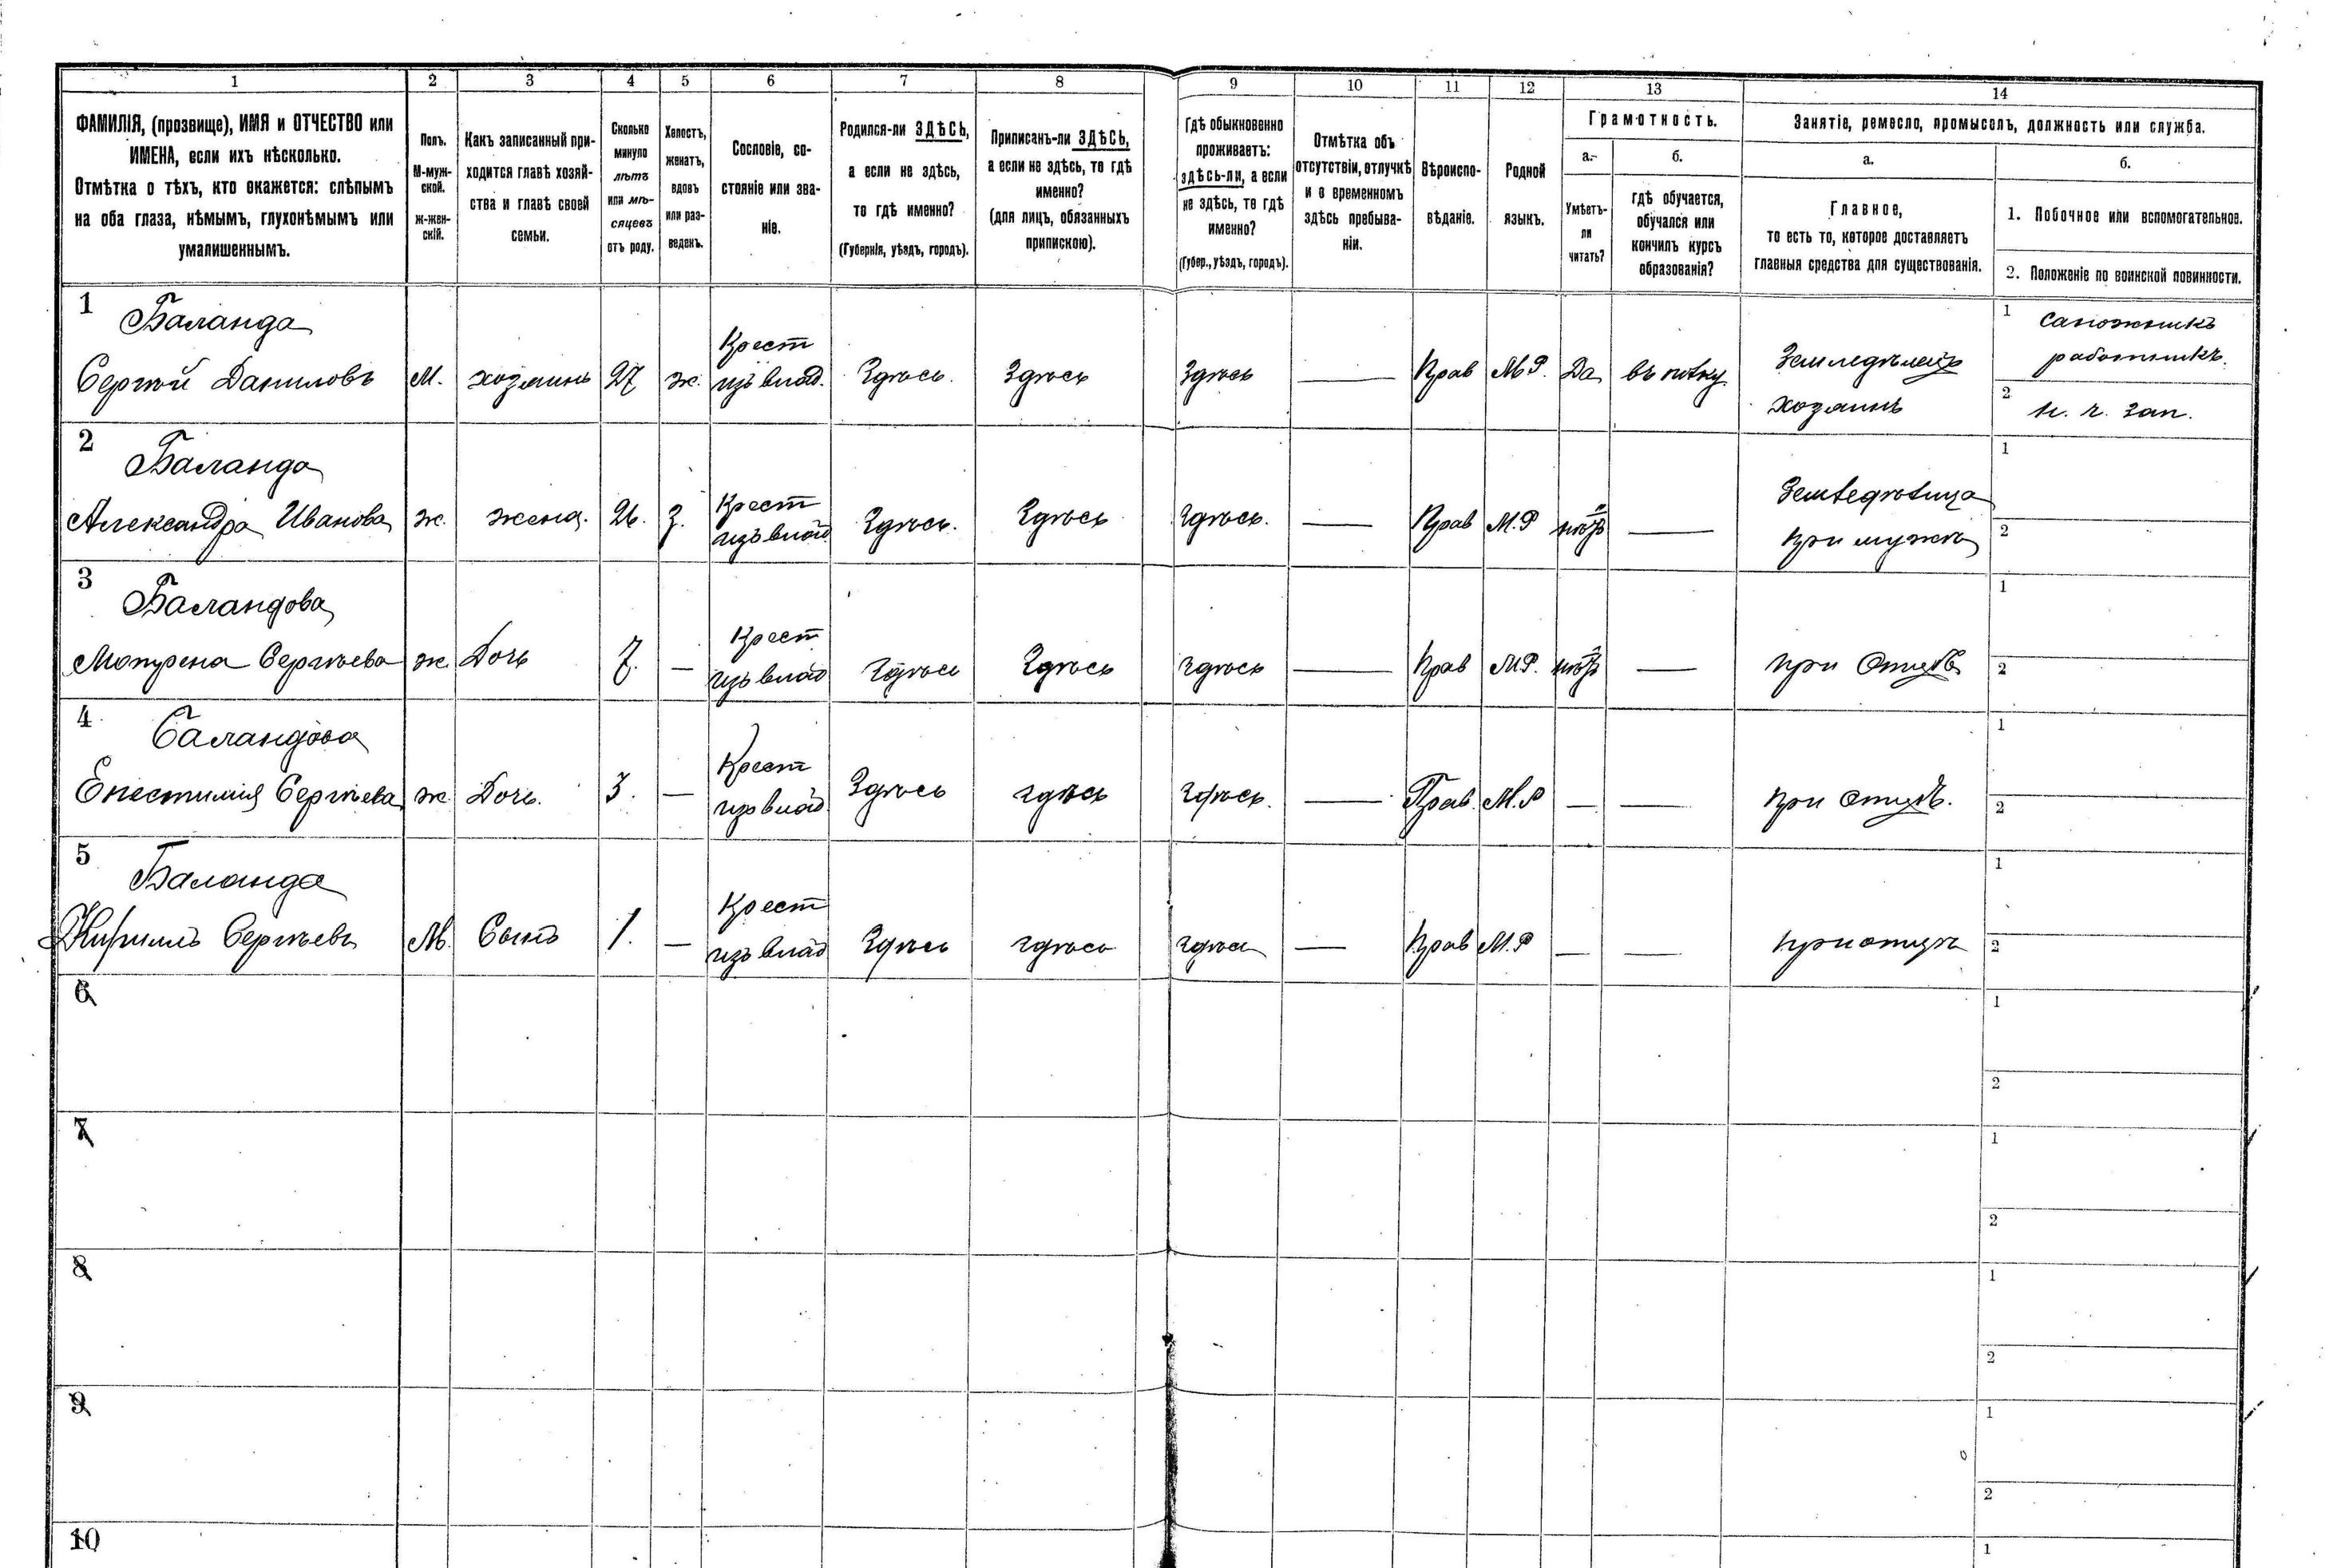 1 2 3 4 5 6 7 8 9 10 11 12 13 14
ФАМИЛІЯ, (прозвище), ИМЯ и ОТЧЕСТВО или
ИМЕНА, если ихъ нѣсколько.
Отмѣтка о тѣхъ, кто окажется: слѣпымъ
на оба глаза, нѣмымъ, глухонѣмымъ или
умалишеннымъ.
Полъ.
М-муж-
ской.
ж-жен-
скій.
Какъ записанный при-
ходится главѣ хозяй-
ства и главѣ своей
семьи.
Сколько
минуло
лѣтъ
или мѣ-
сяцевъ
отъ роду.
Холостъ,
женатъ,
вдовъ
или раз-
веденъ.
Сословіе, со-
стояніе или зва-
ніе.
Родился-ли ЗДѢСЬ,
а если не здѣсь,
то гдѣ именно?
(Губернія, уѣздъ, городъ).
Приписанъ-ли ЗДѢСЬ,
а если не здѣсь, то гдѣ
именно?
(для лицъ, обязанныхъ
припискою).
Гдѣ обыкновенно
проживаетъ:
здѣсь-ли, а если
не здѣсь, то гдѣ
именно?
(Губер., уѣздъ, городъ).
Отмѣтка объ
отсутствіи, отлучкѣ
и о временномъ
здѣсь пребыва-
ніи.
Вѣроиспо-
вѣданіе.
Родной
языкъ.
Грамотность.
а.
Умѣетъ-
ли
читать?
б.
гдѣ обучается,
обучался или
кончилъ курсъ
образованія?
Занятіе, ремесло, промыселъ, должность или служба.
а.
Главное,
то есть то, которое доставляетъ
главныя средства для существованія.
б.
1. Побочное или вспомогательное.
2. Положеніе по воинской повинности.
1 Баланда
Сергѣй Даниловъ М. хозяинъ 27 ж. Крест изъ влад. Здѣсь. Здѣсь Здѣсь — Прав М.Р. Да Земледѣлецъ хозяинъ
1 сапожникъ
работникъ.
2 н. ч. зап.
2 Баланда
Александра Иванова ж. жена. 26. З. Крест изъ влад Здѣсь. Здѣсь Здѣсь. — Прав М.Р нѣтъ — при мужѣ
1
2
3 Баландова
Мотрена Сергѣева ж. Дочь 7. — Крест изъ влад Здѣсь Здѣсь Здѣсь — Прав М.Р. нѣтъ — при Отцѣ
1
2
4 Баландова
Епестимія Сергѣева ж. Дочь. 3. — Крест изъ влад Здѣсь здѣсь Здѣсь. — Прав. М.Р — — при Отцѣ.
1
2
5 Баланда
Кириллъ Сергѣевъ М. Сынъ 1. — Крест изъ влад Здѣсь здѣсь здѣсь — Прав М.Р — — при отцѣ
1
2
6
1
2
7
1
2
8
1
2
9
1
2
10
1